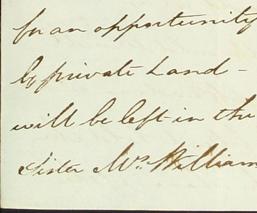 for an opportunity
by private hand -
will be left in the
Sister Mrs. William